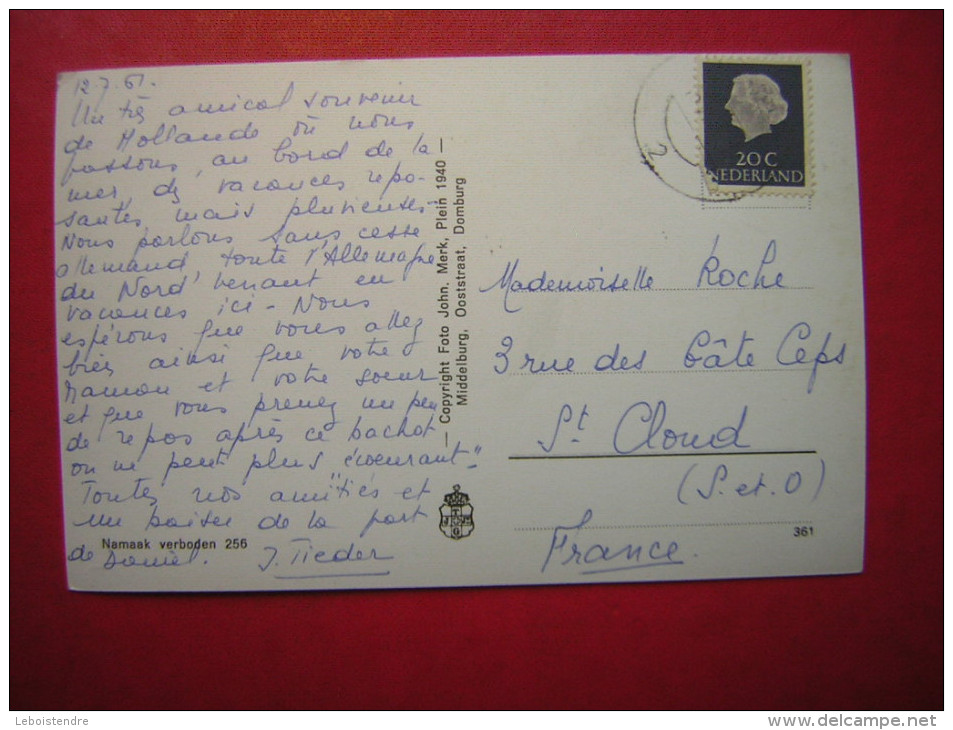 12.7.61.
Un très amical souvenir
de Hollande où nous
passons, au bord de la
mer, des vacances repo-
santes mais pluvieuses.
Nous parlons sans cesse
allemand, toute l'Allemagne
du Nord venant en
vacances ici - Nous
espérons que vous allez
bien ainsi que votre
Maman et votre soeur
et que vous prenez un peu
de repos après ce bachot
on ne peut plus "écoeurant".
Toutes nos amitiés et
un baiser de la part
de Daniel. J. Tieder
Namaak verboden 256
— Copyright Foto John. Merk, Plein 1940 —
Middelburg, Ooststraat, Domburg
20 C
NEDERLAND
2
Mademoiselle Roche
3 rue des Gâte Ceps
St Cloud
(S. et. O)
France.
361
Leboistendre
www.delcampe.net